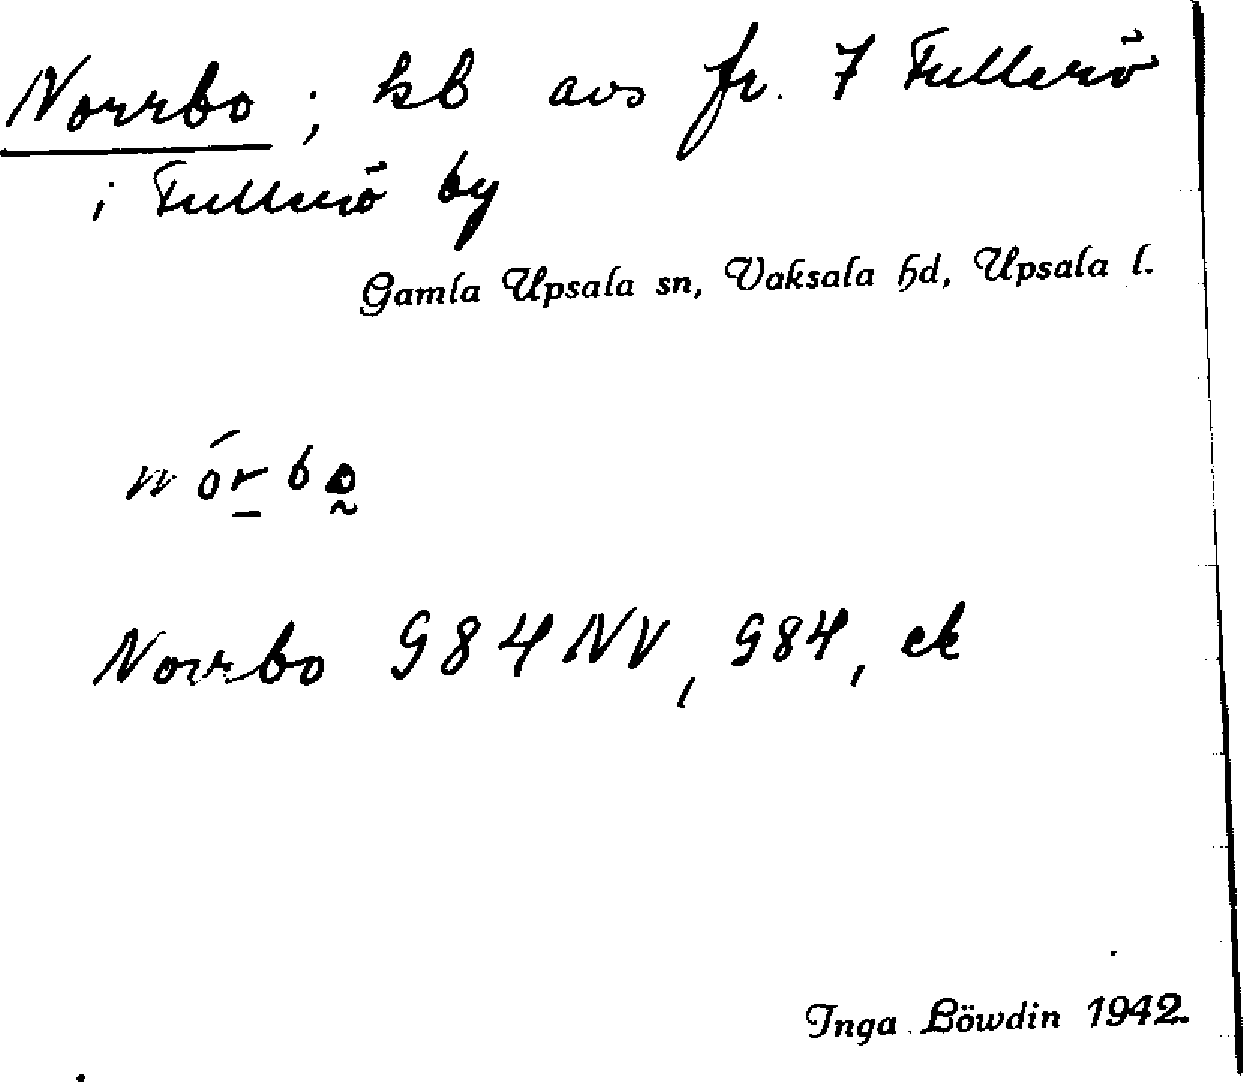 Norrbo; hb avs fr. 7 Fullerö
i Fullerö by
Gamla Upsala sn, Vaksala hd, Upsala l.
nórbo̰
Norrbo 984 NV, 984, ek
Inga Löwdin 1942.